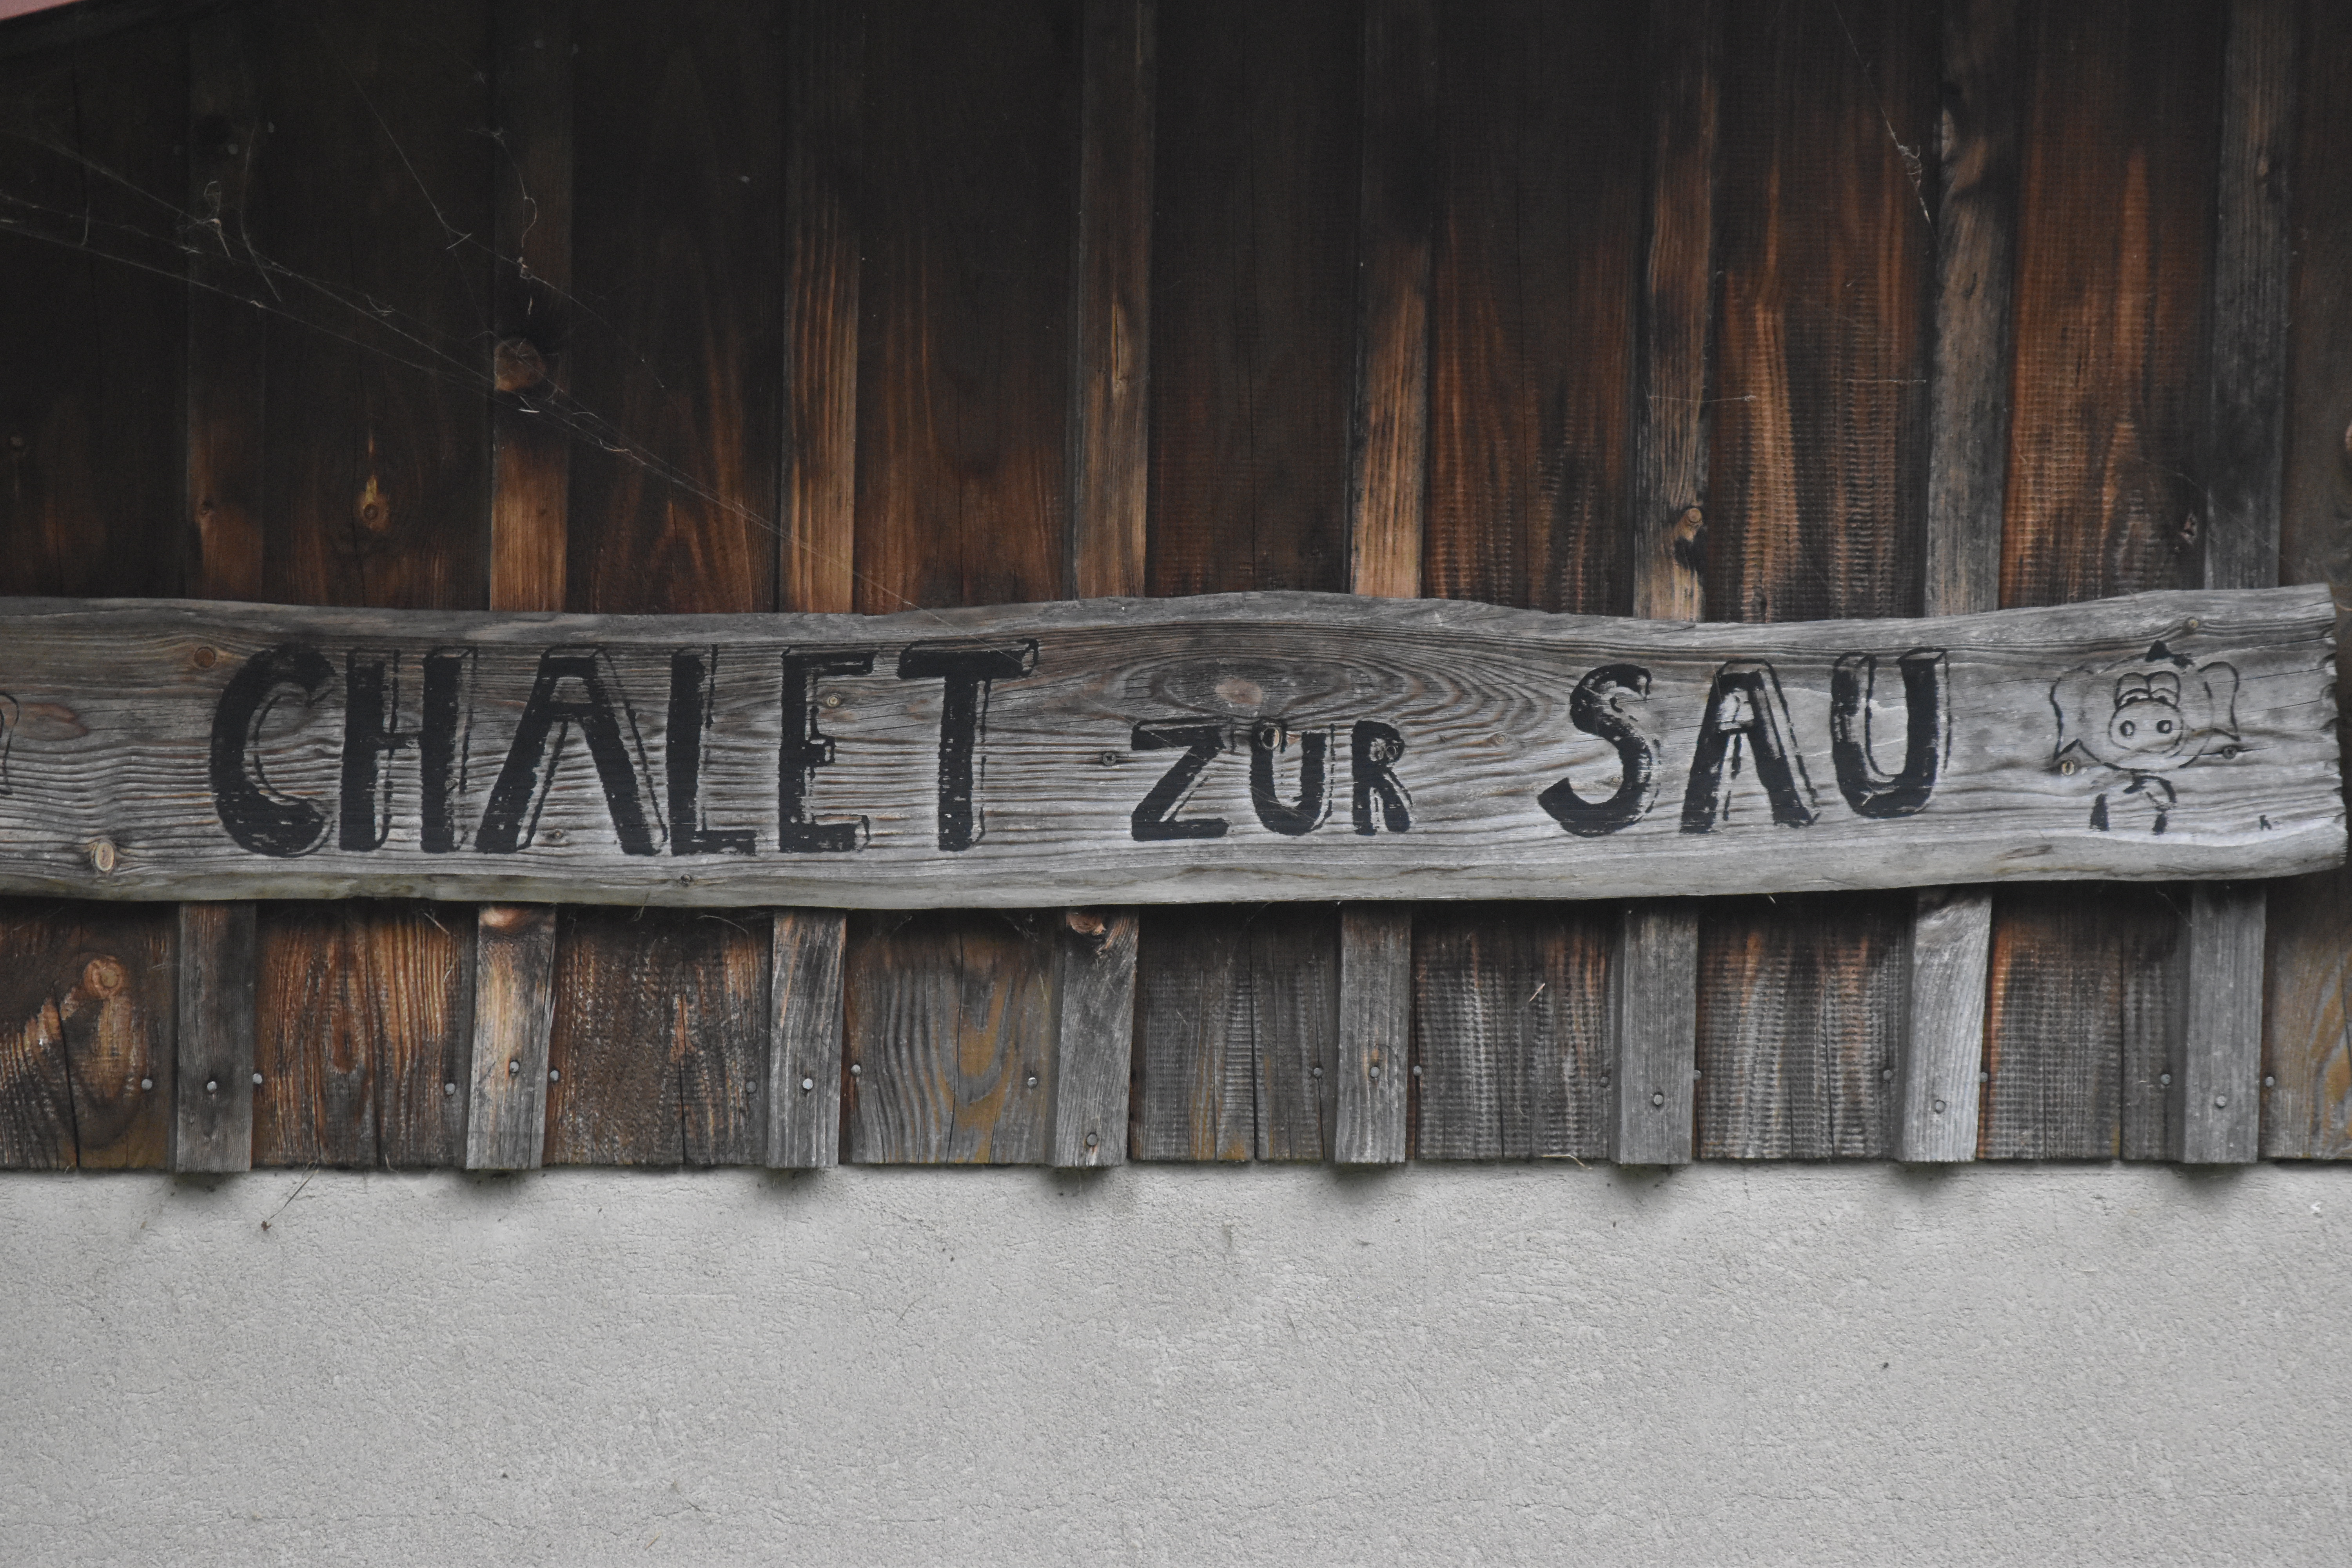 CHALET ZUR SAU